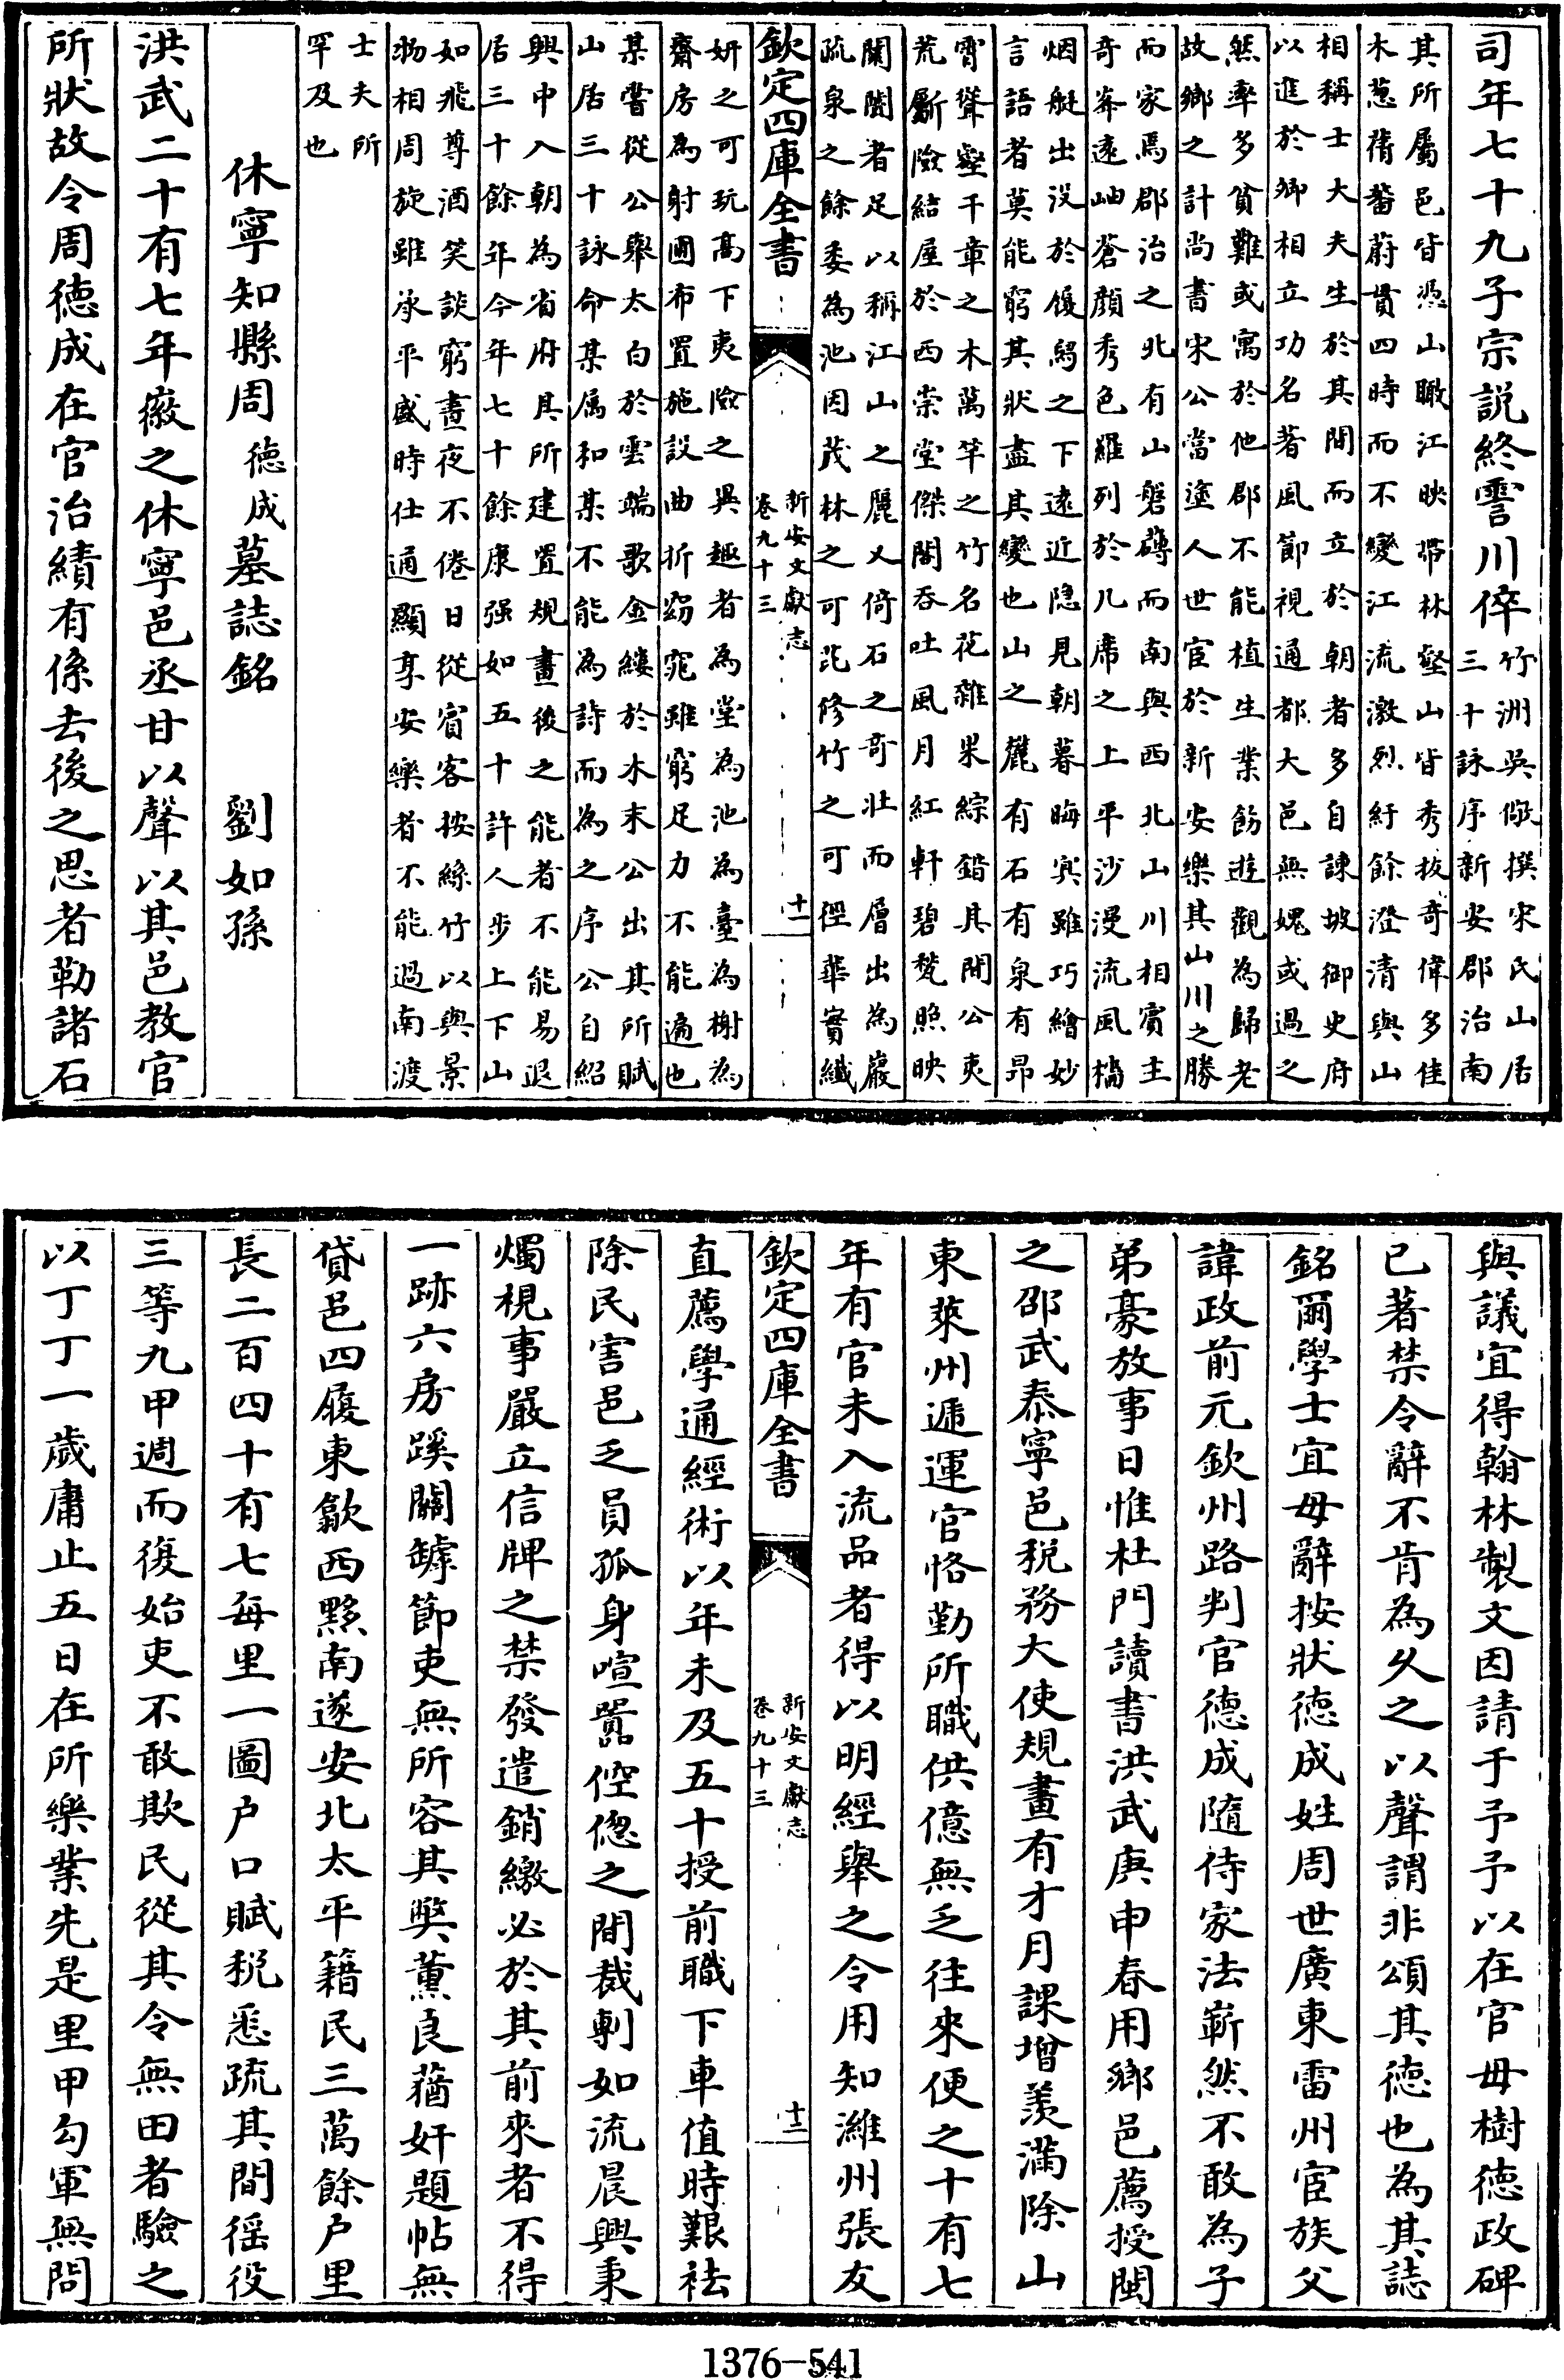 司年七十九子宗說終雩川倅
竹洲吳儆撰宋氏山居
三十詠序新安郡治南
其所屬邑皆憑山瞰江映帶林壑山皆秀拔奇偉多佳
木蔥蒨蕃蔚貫四時而不變江流激烈紆餘澄清與山
相稱士大夫生於其間而立於朝者多自諫坡御史府
以進於卿相立功名著風節視通都大邑無媿或過之
然率多貧難或寓於他郡不能植生業飭遊觀為歸老
故鄉之計尚書宋公當塗人世宦於新安樂其山川之勝
而家焉郡治之北有山磐礴而南與西北山川相賓主
奇峯遠岫蒼顏秀色羅列於几席之上平沙漫流風檣
烟艇出沒於履舄之下遠近隠見朝暮晦冥雖巧繪妙
言語者莫能窮其狀盡其變也山之麓有石有泉有昂
霄聳壑千章之木萬竿之竹名花雜果綜錯其間公夷
荒斸險結屋於西崇堂傑閣吞吐風月紅軒碧甃照映
闤闠者足以稱江山之麗又倚石之奇壯而層出為巖
疏泉之餘委為池因茂林之可芘修竹之可徑華實纖
欽定四庫全書
新安文獻志
卷九十三
十一
妍之可玩高下夷險之異趣者為堂為池為臺為榭為
齋房為射圃布置施設曲折窈窕雖窮足力不能遍也
某嘗從公舉太白於雲端歌金縷於木末公出其所賦
山居三十詠命某属和某不能為詩而為之序公自紹
興中入朝為省府其所建置規畫後之能者不能易退
居三十餘年今年七十餘康强如五十許人步上下山
如飛尊酒笑談窮晝夜不倦日從賓客按絲竹以與景
物相周旋雖承平盛時仕通顯享安樂者不能過南渡
士夫所
罕及也
休寧知縣周德成墓誌銘 劉如孫
洪武二十有七年徽之休寧邑丞甘以聲以其邑教官
所狀故令周徳成在官治績有係去後之思者勒諸石
與議宜得翰林製文因請于予予以在官毋樹徳政碑
已著禁令辭不肯為久之以聲謂非頌其徳也為其誌
銘爾學士宜毋辭按狀徳成姓周世廣東雷州宦族父
諱政前元欽州路判官德成隨侍家法嶄然不敢為子
弟豪放事日惟杜門讀書洪武庚申春用鄉邑薦授閩
之邵武泰寧邑税務大使規畫有才月課增羨滿除山
東萊州遞運官恪勤所職供億無乏往來便之十有七
年有官未入流品者得以明經舉之令用知濰州張友
欽定四庫全書
新安文獻志
卷九十三
十二
直薦學通經術以年未及五十授前職下車值時艱祛
除民害邑乏員孤身喧嚚倥偬之間裁剸如流晨興秉
燭視事嚴立信牌之禁發遣銷繳必於其前來者不得
一跡六房蹊闗罅節吏無所容其獘薰良蕕奸題帖無
貸邑四履東歙西黟南遂安北太平籍民三萬餘户里
長二百四十有七每里一圖户口賦税悉疏其間徭役
三等九甲週而復始吏不敢欺民從其令無田者驗之
以丁丁一歲庸止五日在所樂業先是里甲勾軍無問
1376-541